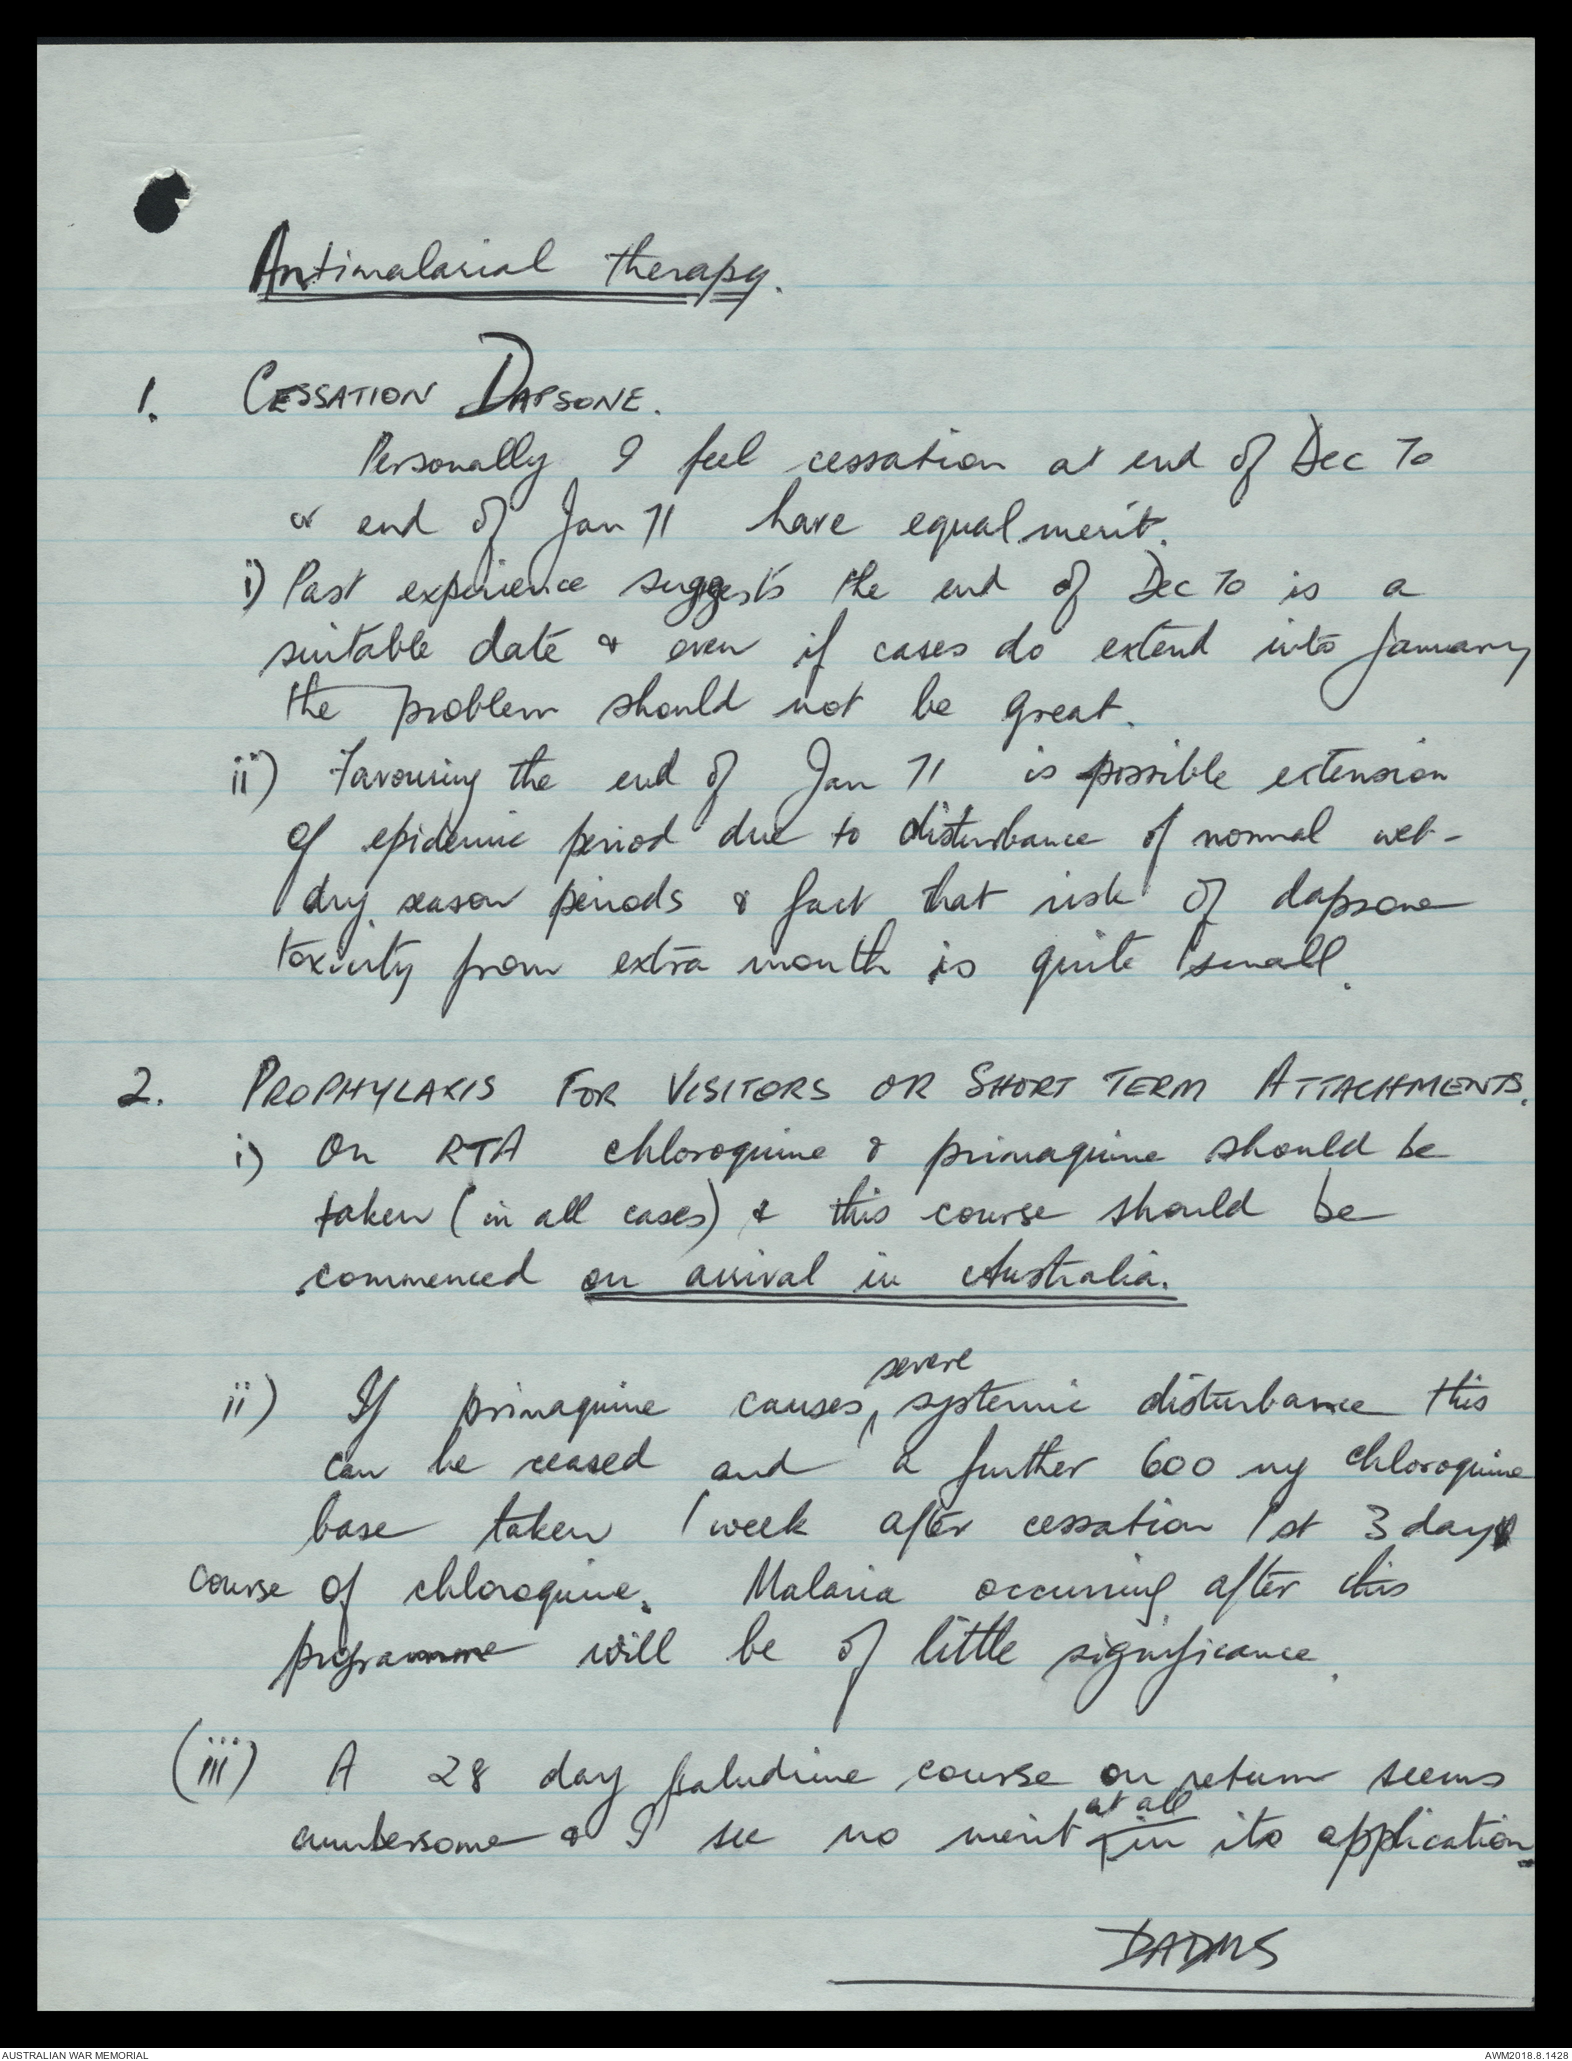 Antimalarial therapy.
1. CESSATION DAPSONE.
Personally I feel cessation at end of Dec 70
or end of Jan 71 have equal merit.
i) Past experience suggests the end of Dec 70 is a
suitable date & even if cases do extend into January
the problem should not be great.
ii) Favouring the end of Jan 71 is possible extension
of epidemic period due to disturbance of normal wet-
dry season periods & fact that risk of dapsone
toxicity from extra month is quite small.
2. PROPHYLAXIS FOR VISITORS OR SHORT TERM ATTACHMENTS.
i) On RTA chloroquine & primaquine should be
taken (in all cases) & this course should be
commenced on arrival in Australia.
ii) If primaquine causes severe systemic disturbance this
can be ceased and a further 600 mg chloroquine
base taken 1 week after cessation 1st 3 day
course of chloroquine. Malaria occurring after this
programme will be of little significance.
(iii) A 28 day paludrine course on return seems
cumbersome & I see no merit at all in its application.
DADMS
AUSTRALIAN WAR MEMORIAL
AWM2018.8.1428